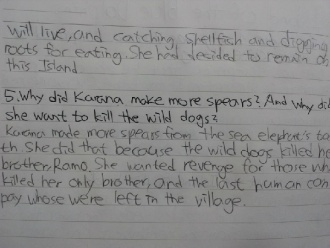 will live, and catching shellfish and digging
roots for eating. She had decided to remain on
this Island
5. Why did Karana make more spears? And why did
she want to kill the wild dogs?
Karana made more spears from the sea elephant's too
th. She did that because the wild dogs killed her
brother, Ramo. She wanted revenge for those who
killed her only brother, and the last human com
pany whose we're left in the village.